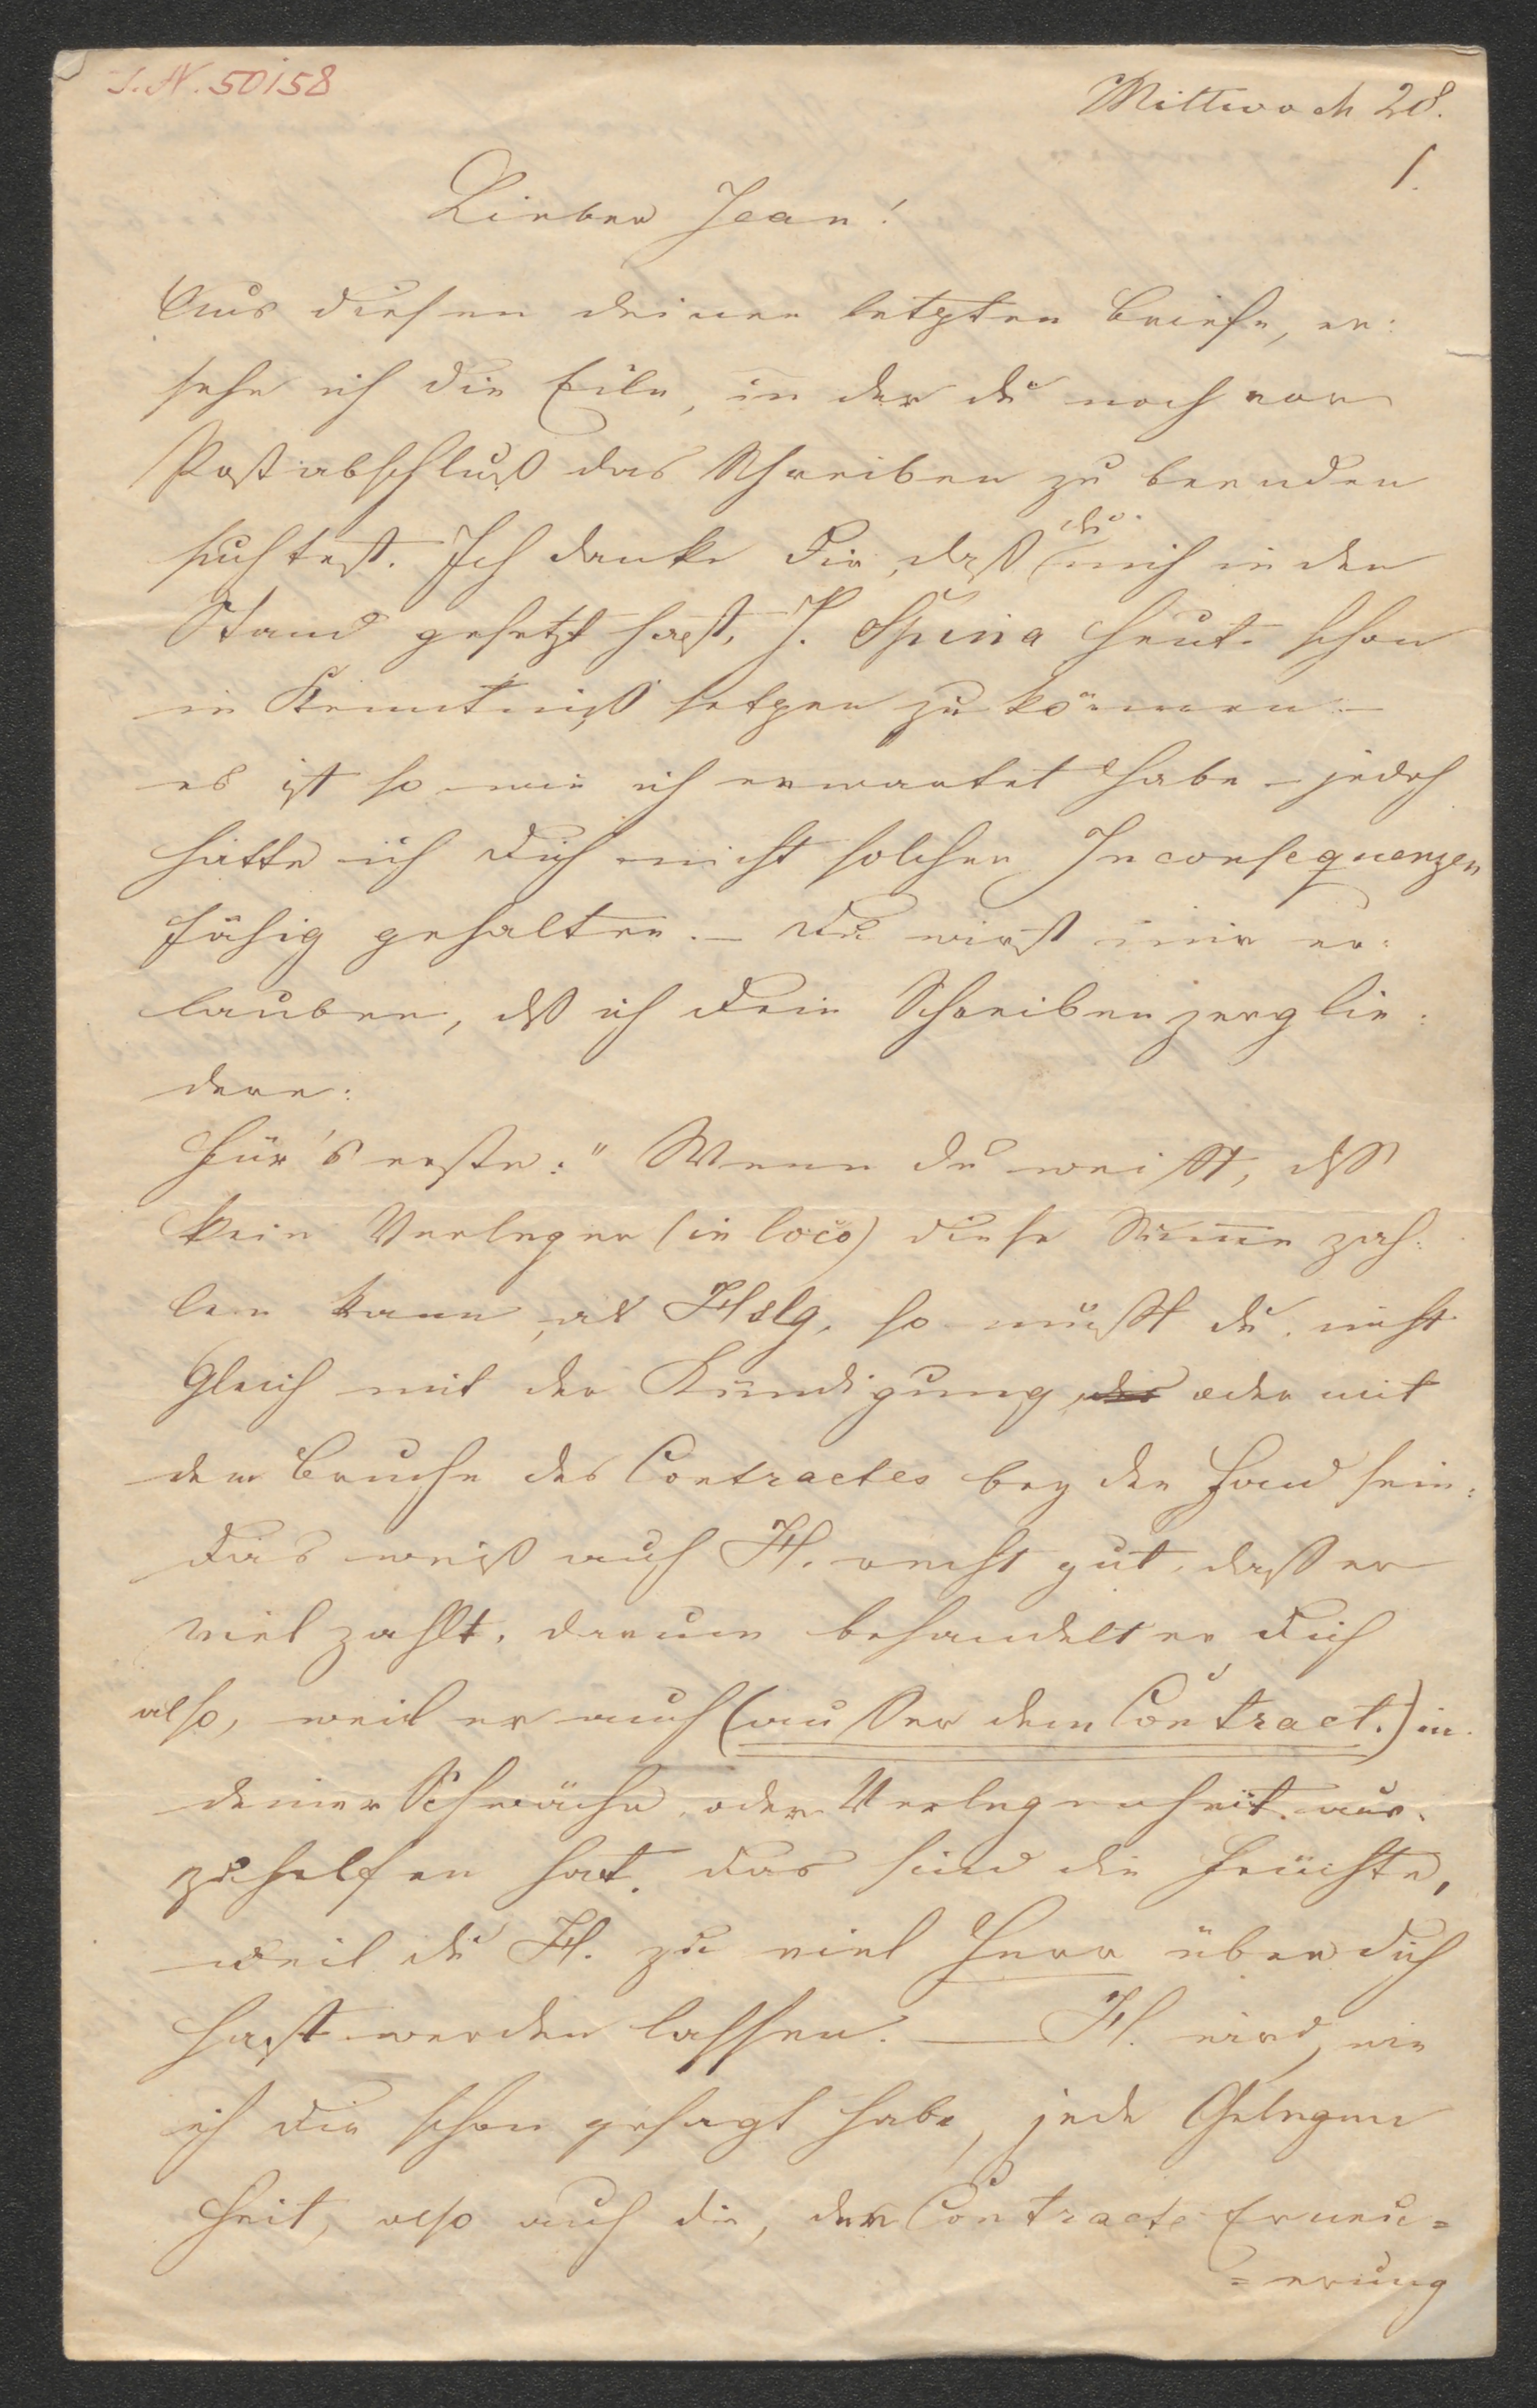 I.N. 50158
Mittwoch 28.
1.
Lieber Jean!
Aus diesen deinen letzten Briefe, er:
sehe ich die Eile, in der du noch vor
Postabschluß das Schreiben zu beenden
suchtest. Ich danke Dir, daß du mich in den
Stand gesetzt hast, H. Spina heute schon
in Kenntniß setzen zu können –
es ist so wie ich erwartet habe – jedoch
hätte ich Dich nicht solcher Inconsequenzen
fähig gehalten. – Du wirst mir er:
lauben, dß ich Dein Schreiben zerglie:
dere:
Für's erste: " Wenn du weißt, dß
kein Verleger (in loco) diese Sum̄e zah:
len kann, als Hslg, so mußt du nicht
gleich mit der Kündigung, des oder mit
dem Bruche des Contractes bey der Hand sein:
das weiß auch H. recht gut, daß er
viel zahlt, darum behandelt er Dich
also, weil er auch (außer dem Contract.) in
deiner Schwäche, oder Verlegenheit aus:
zuhelfen hat. das sind die Früchte,
weil du H. zu viel Herr über dich
hast werden lassen. — H. wird, wie
ich Dir schon gesagt habe, jede Gelegen
heit, also auch die, der Contracts Erneu=
=erung